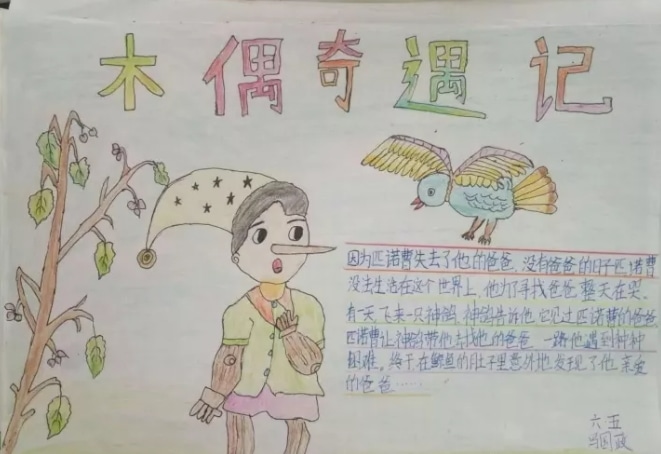 木偶奇遇记
因为匹诺曹失去了他的爸爸，没有爸爸的日子匹诺曹
没法生活在这个世界上，他为了寻找爸爸整天在哭。
有一天飞来一只神鸽，神鸽告诉他，它见过匹诺曹的爸爸
匹诺曹让神鸽带他去找他的爸爸，一路他遇到种种
困难。终于在鲸鱼的肚子里意外地发现了他亲爱
的爸爸……
六五